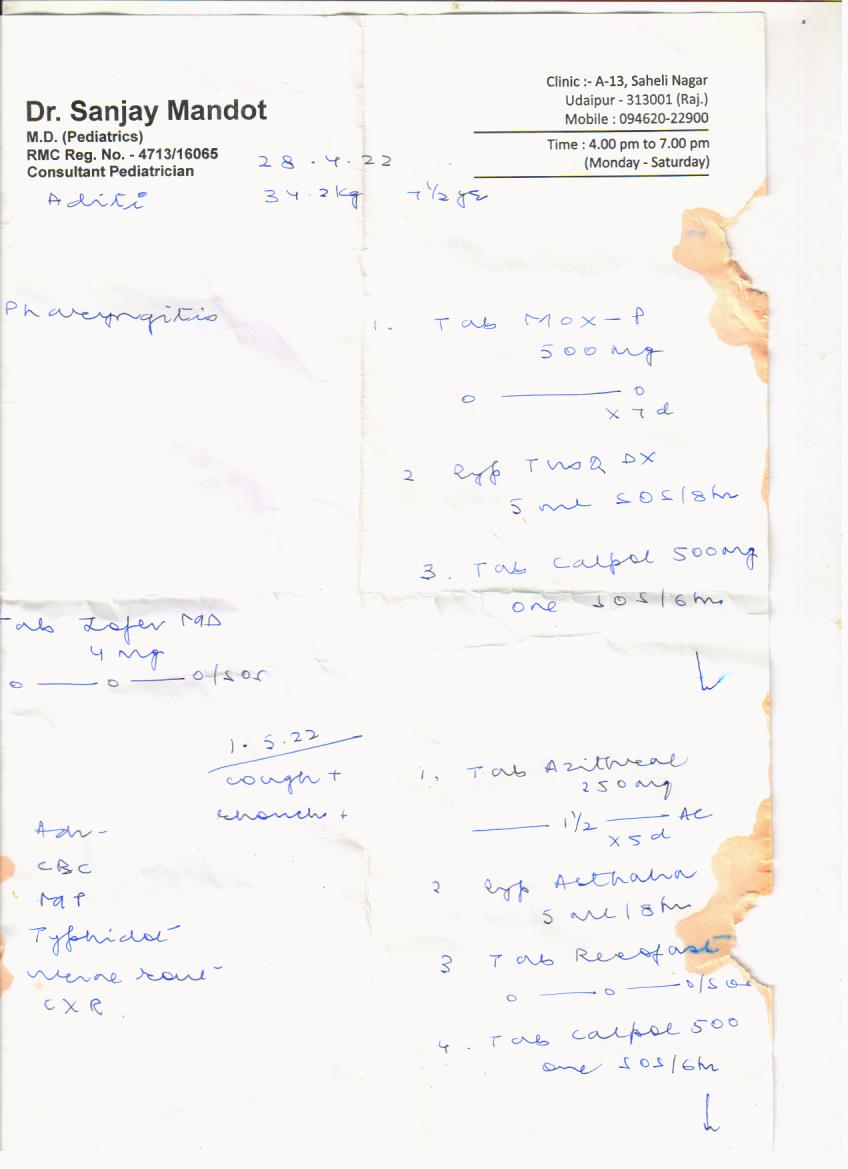 Dr. Sanjay Mandot
M.D. (Pediatrics)
RMC Reg. No. - 4713/16065
Consultant Pediatrician
Clinic :- A-13, Saheli Nagar
Udaipur - 313001 (Raj.)
Mobile : 094620-22900
Time : 4.00 pm to 7.00 pm
(Monday - Saturday)
28.4.22
Aditi 34.2kg 7 1/2 yr
Pharyngitis
1. Tab MOX-P
500 mg
0 — 0
x 7 d
2 Syp TusQ DX
5 ml SOS/8hr
3. Tab Calpol 500mg
one SOS/6hr
Tab Zofer MD
4 mg
0 — 0 — 0/SOS
1.5.22
cough +
rhonchi +
Adv-
CBC
MP
Typhidot
CXR
1. Tab Azithral
250 mg
— 1 1/2 — AC
x 5 d
2 Syp Asthalin
5 ml/8hr
3 Tab
0 — 0 — 0/SOS
4. Tab Calpol 500
one SOS/6hr